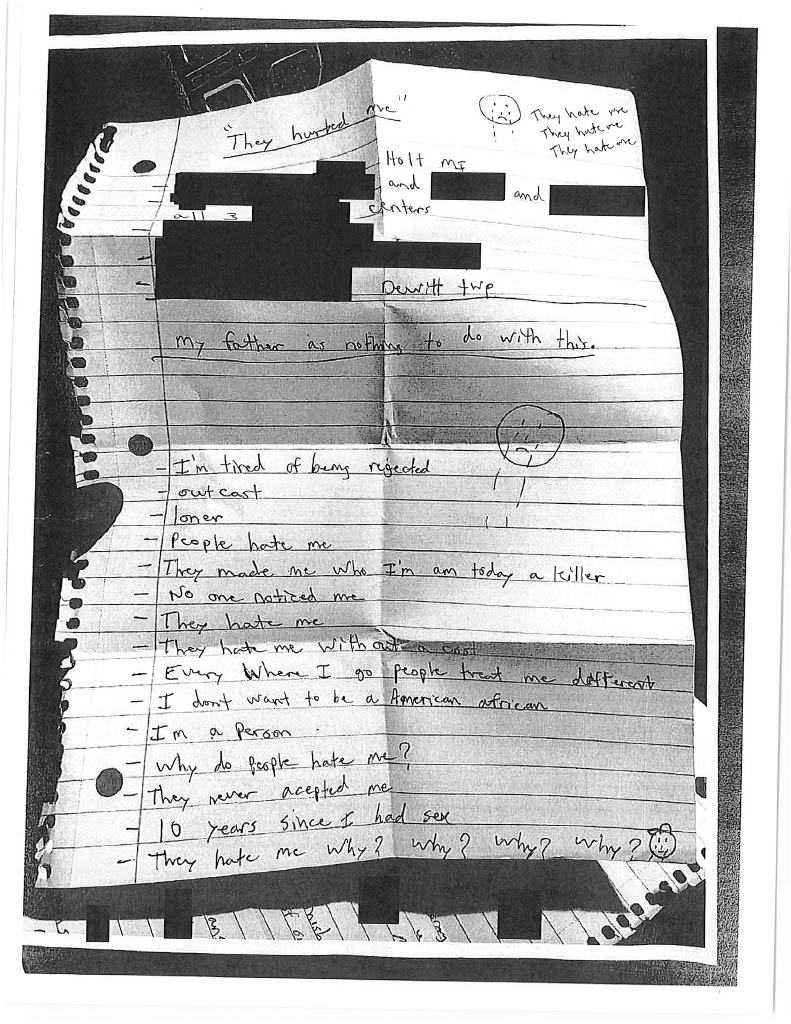 "They hurted me"
They hate me
They hate me
They hate me
Holt MI
and and
all 3 centers
Dewitt twp
My father as nothing to do with this.
- I'm tired of being rejected
- outcast
- loner
- People hate me
- They made me who I'm am today a killer
- No one noticed me
- They hate me
- They hate me without a
- Every where I go people treat me different
- I don't want to be a American african
- I'm a person
- why do people hate me?
- They never acepted me
- 10 years since I had sex
- They hate me why? why? why? why?